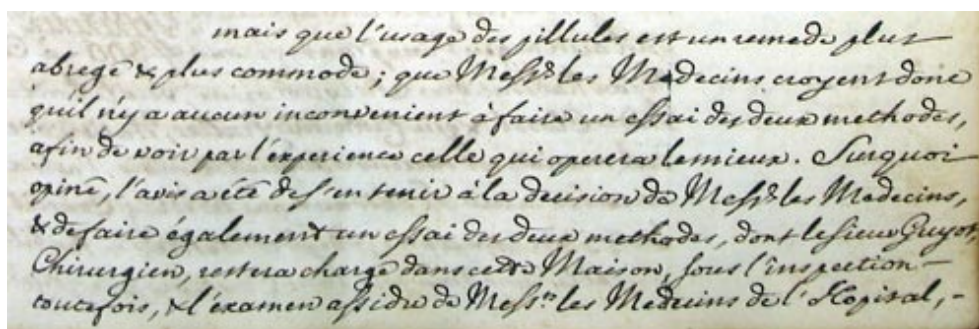 mais que l'usage des pillules est un remede plus
abregé & plus commode ; que Mess.rs les Medecins croyent donc
qu'il n'y a aucun inconvenient à faire un essai des deux methodes,
afin de voir par l'experience celle qui operera le mieux. Surquoi
opiné, l'avis a été de s'en tenir à la decision de Mess.rs les Medecins,
& de faire également un essai des deux methodes, dont le sieur Guyot
Chirurgien, restera chargé dans cette Maison, sous l'inspection -
toutefois, & l'examen assidu de Mess.rs les Medecins de l'Hopital, -